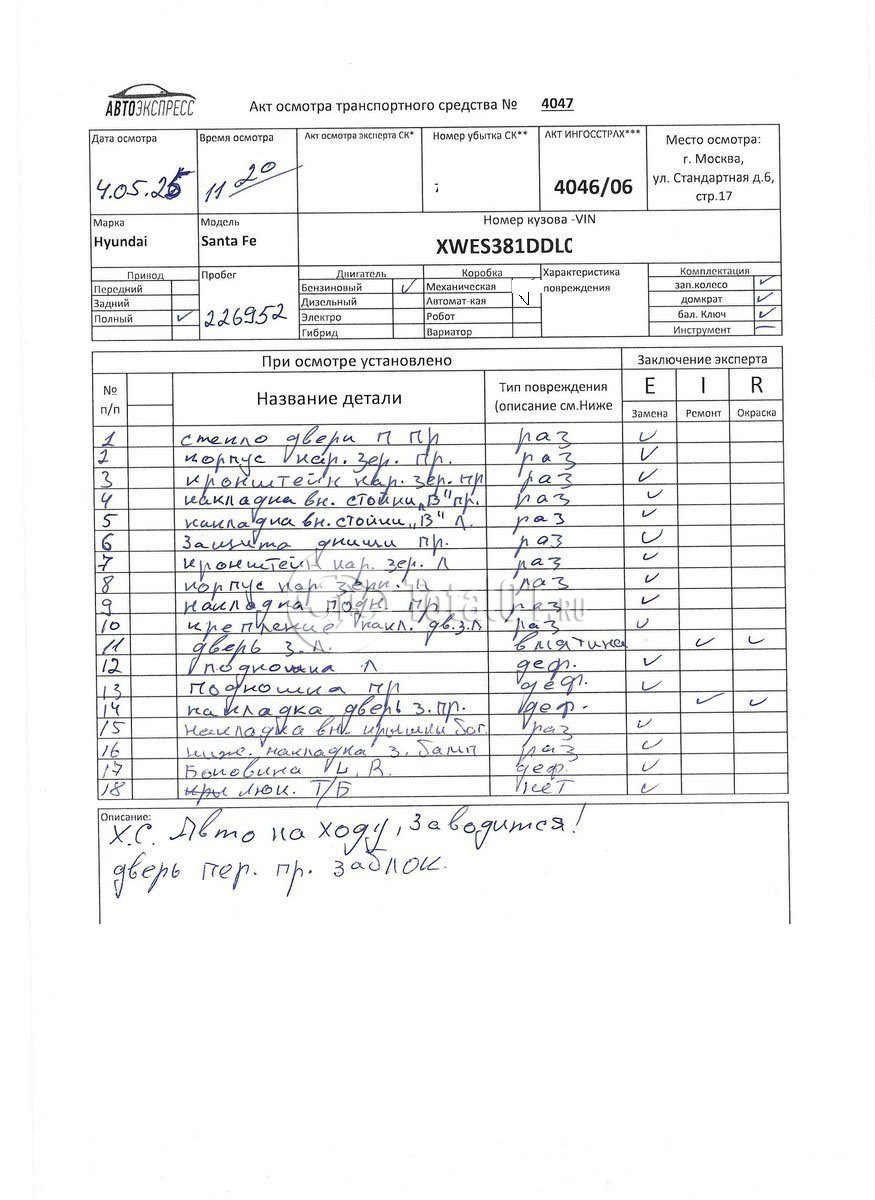 АВТОЭКСПРЕСС
Акт осмотра транспортного средства № 4047
Дата осмотра
4.05.25
Время осмотра
11 20
Акт осмотра эксперта СК*
Номер убытка СК**
АКТ ИНГОССТРАХ***
4046/06
Место осмотра:
г. Москва,
ул. Стандартная д.6,
стр.17
Марка
Hyundai
Модель
Santa Fe
Номер кузова -VIN
XWES381DDLC
Привод
Передний
Задний
Полный ✓
Пробег
226952
Двигатель
Бензиновый ✓
Дизельный
Электро
Гибрид
Коробка
Механическая
Автомат-кая ✓
Робот
Вариатор
Характеристика
повреждения
Комплектация
зап.колесо ✓
домкрат ✓
бал. Ключ ✓
Инструмент —
При осмотре установлено Заключение эксперта
№ п/п Название детали Тип повреждения (описание см.Ниже E I R
Замена Ремонт Окраска
1 стекло двери П ПР раз ✓
2 корпус нар. зер. пр. раз ✓
3 кронштейн нар. зер. пр раз ✓
4 накладка вн. стойки „В" пр. раз ✓
5 накладка вн. стойки „В" Л. раз ✓
6 Защита днища пр. раз ✓
7 кронштейн нар. зер. Л раз ✓
8 корпус нар. зерк. Л раз ✓
9 накладка подн. пр. раз ✓
10 крепление накл. дв. з. Л раз ✓
11 дверь з. л. вмятина ✓ ✓
12 подножка Л деф. ✓
13 подножка пр деф. ✓
14 накладка дверь з. пр. деф. ✓ ✓
15 накладка вн. крышки баг. раз ✓
16 ниж. накладка з. бамп раз ✓
17 Боковина L, R. деф. ✓
18 люк. Т/Б нет ✓
Total01.RU
Описание:
Х.С. Авто на ходу, заводится!
дверь пер. пр. заблок.